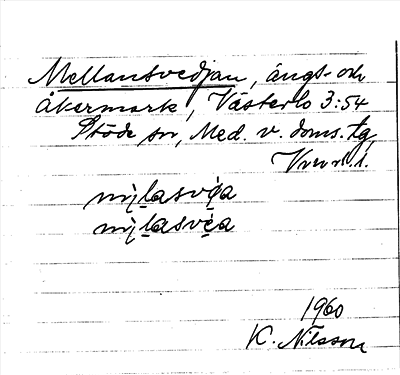 Mellansvedjan, ängs- och
åkermark, Västerlo 3:54
Stöde sn, Med. v. doms. tg,
mi̯lasve̯a
mi̯lasve̯a
1960
K. Nilsson